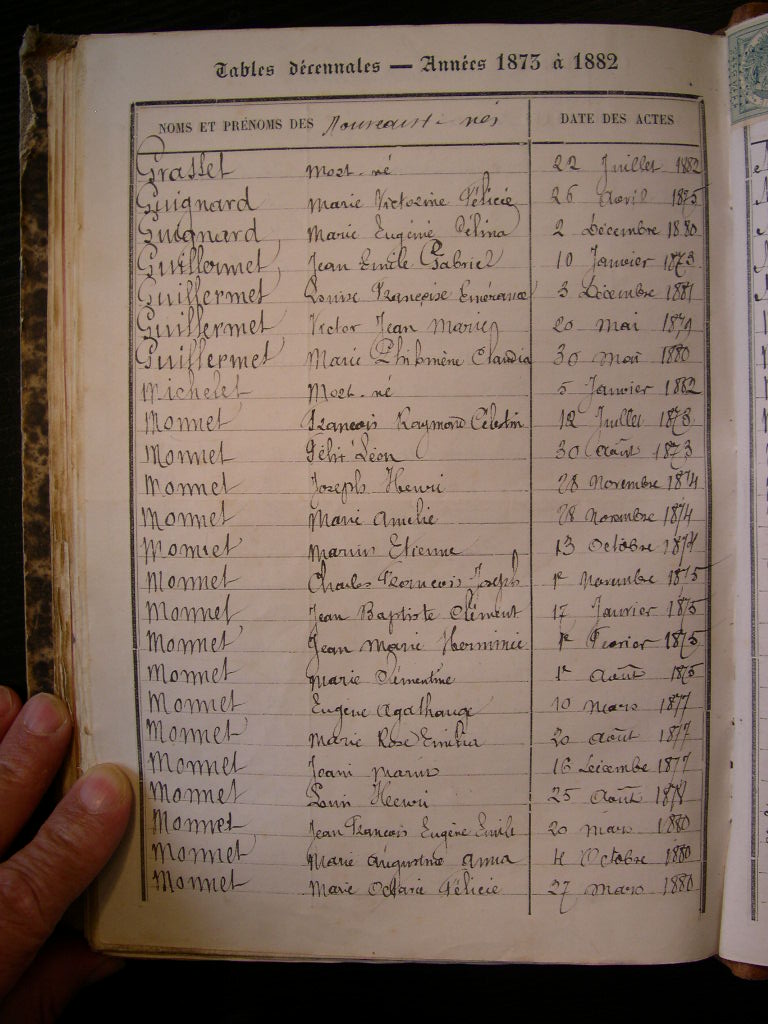 Tables décennales — Années 1873 à 1882
NOMS ET PRÉNOMS DES nouveaux-nés DATE DES ACTES
Grasset Mort-né 22 Juillet 1882
Guignard Marie Victorine Félicie 26 Avril 1875
Guignard Marie Eugénie Célina 2 Décembre 1880
Guillermet Jean Emile Gabriel 10 Janvier 1873
Guillermet Louise Françoise Emérance 3 Décembre 1881
Guillermet Victor Jean Marie 20 Mai 1879
Guillermet Marie Philomène Claudia 30 Mai 1880
Michelet Mort-né 5 Janvier 1882
Monnet François Raymond Célestin 12 Juillet 1873
Monnet Félix Léon 30 Août 1873
Monnet Joseph Henri 28 Novembre 1874
Monnet Marie Amélie 28 Novembre 1874
Monnet Marius Etienne 13 Octobre 1874
Monnet Charles François Joseph 1er Novembre 1875
Monnet Jean Baptiste Clément 17 Janvier 1875
Monnet Jean Marie Herminie 1er Février 1875
Monnet Marie Clémentine 1er Août 1875
Monnet Eugène Agathange 10 Mars 1877
Monnet Marie Rose Emilia 20 Août 1877
Monnet Joani Marius 16 Décembre 1877
Monnet Louis Henri 25 Août 1878
Monnet Jean François Eugène Emile 20 Mars 1880
Monnet Marie Augustine Anna 4 Octobre 1880
Monnet Marie Octavie Félicie 27 Mars 1880